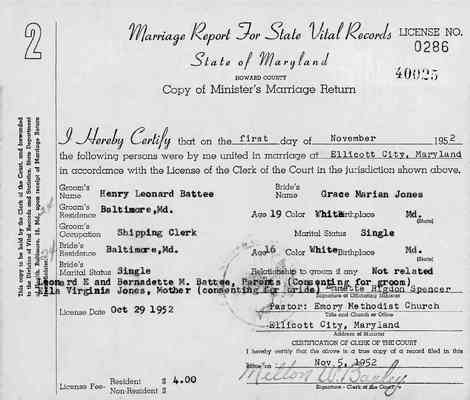 2
Marriage Report For State Vital Records
LICENSE NO.
0286
State of Maryland
40025
HOWARD COUNTY
Copy of Minister's Marriage Return
I Hereby Certify that on the first day of November 1952
the following persons were by me united in marriage at Ellicott City, Maryland
in accordance with the License of the Clerk of the Court in the jurisdiction shown above.
Groom's Name Henry Leonard Battee Bride's Name Grace Marian Jones
Groom's Residence Baltimore, Md. Age 19 Color White Birthplace Md.
(State)
Groom's Occupation Shipping Clerk Marital Status Single
Bride's Residence Baltimore, Md. Age 16 Color White Birthplace Md.
(State)
Bride's Marital Status Single Relationship to groom if any Not related
Leonard E and Bernadette M. Battee, Parents (Consenting for groom)
Ella Virginia Jones, Mother (consenting for bride) Higdon Spencer
Signature of Officiating Minister
License Date Oct 29 1952 Pastor: Emory Methodist Church
Title and Church or Office
Ellicott City, Maryland
Address of Minister
CERTIFICATION OF CLERK OF THE COURT
I hereby certify that the above is a true copy of a record filed in this
office on Nov 5, 1952
License Fee- Resident $ 4.00
Non-Resident $
Signature - Clerk of the Court
This copy to be kept by the Clerk of the Court, and forwarded
to the Division of Vital Records and Statistics, State Department
of Health, Baltimore, 18, Md., upon receipt of Marriage Return